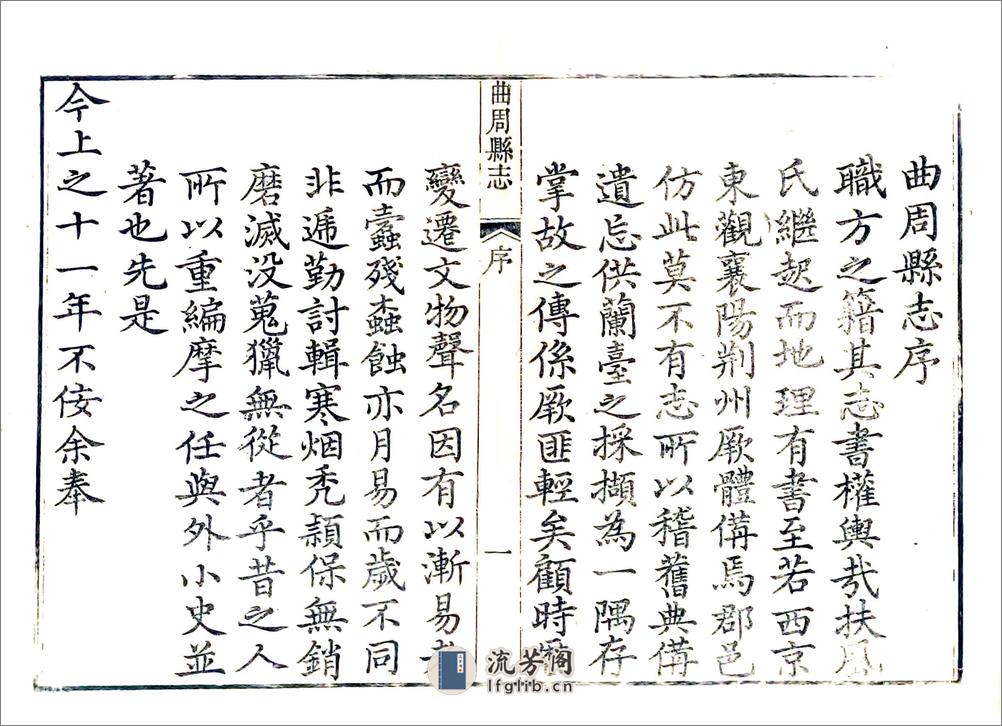 曲周縣志序
職方之籍其志書權輿哉扶風
氏繼起而地理有書至若西京
東觀襄陽荆州厥體備焉郡邑
仿此莫不有志所以稽舊典備
遺忘供蘭臺之採擷為一隅存
掌故之傳係厥匪輕矣顧時
曲周縣志
序
一
變遷文物聲名因有以漸易者
而蠧殘蟲蝕亦月易而歲不同
非遞勤討輯寒烟秃穎保無銷
磨滅没蒐獵無從者乎昔之人
所以重編摩之任與外小史並
著也先是
今上之十一年不佞余奉
流芳阁
lfglib.cn